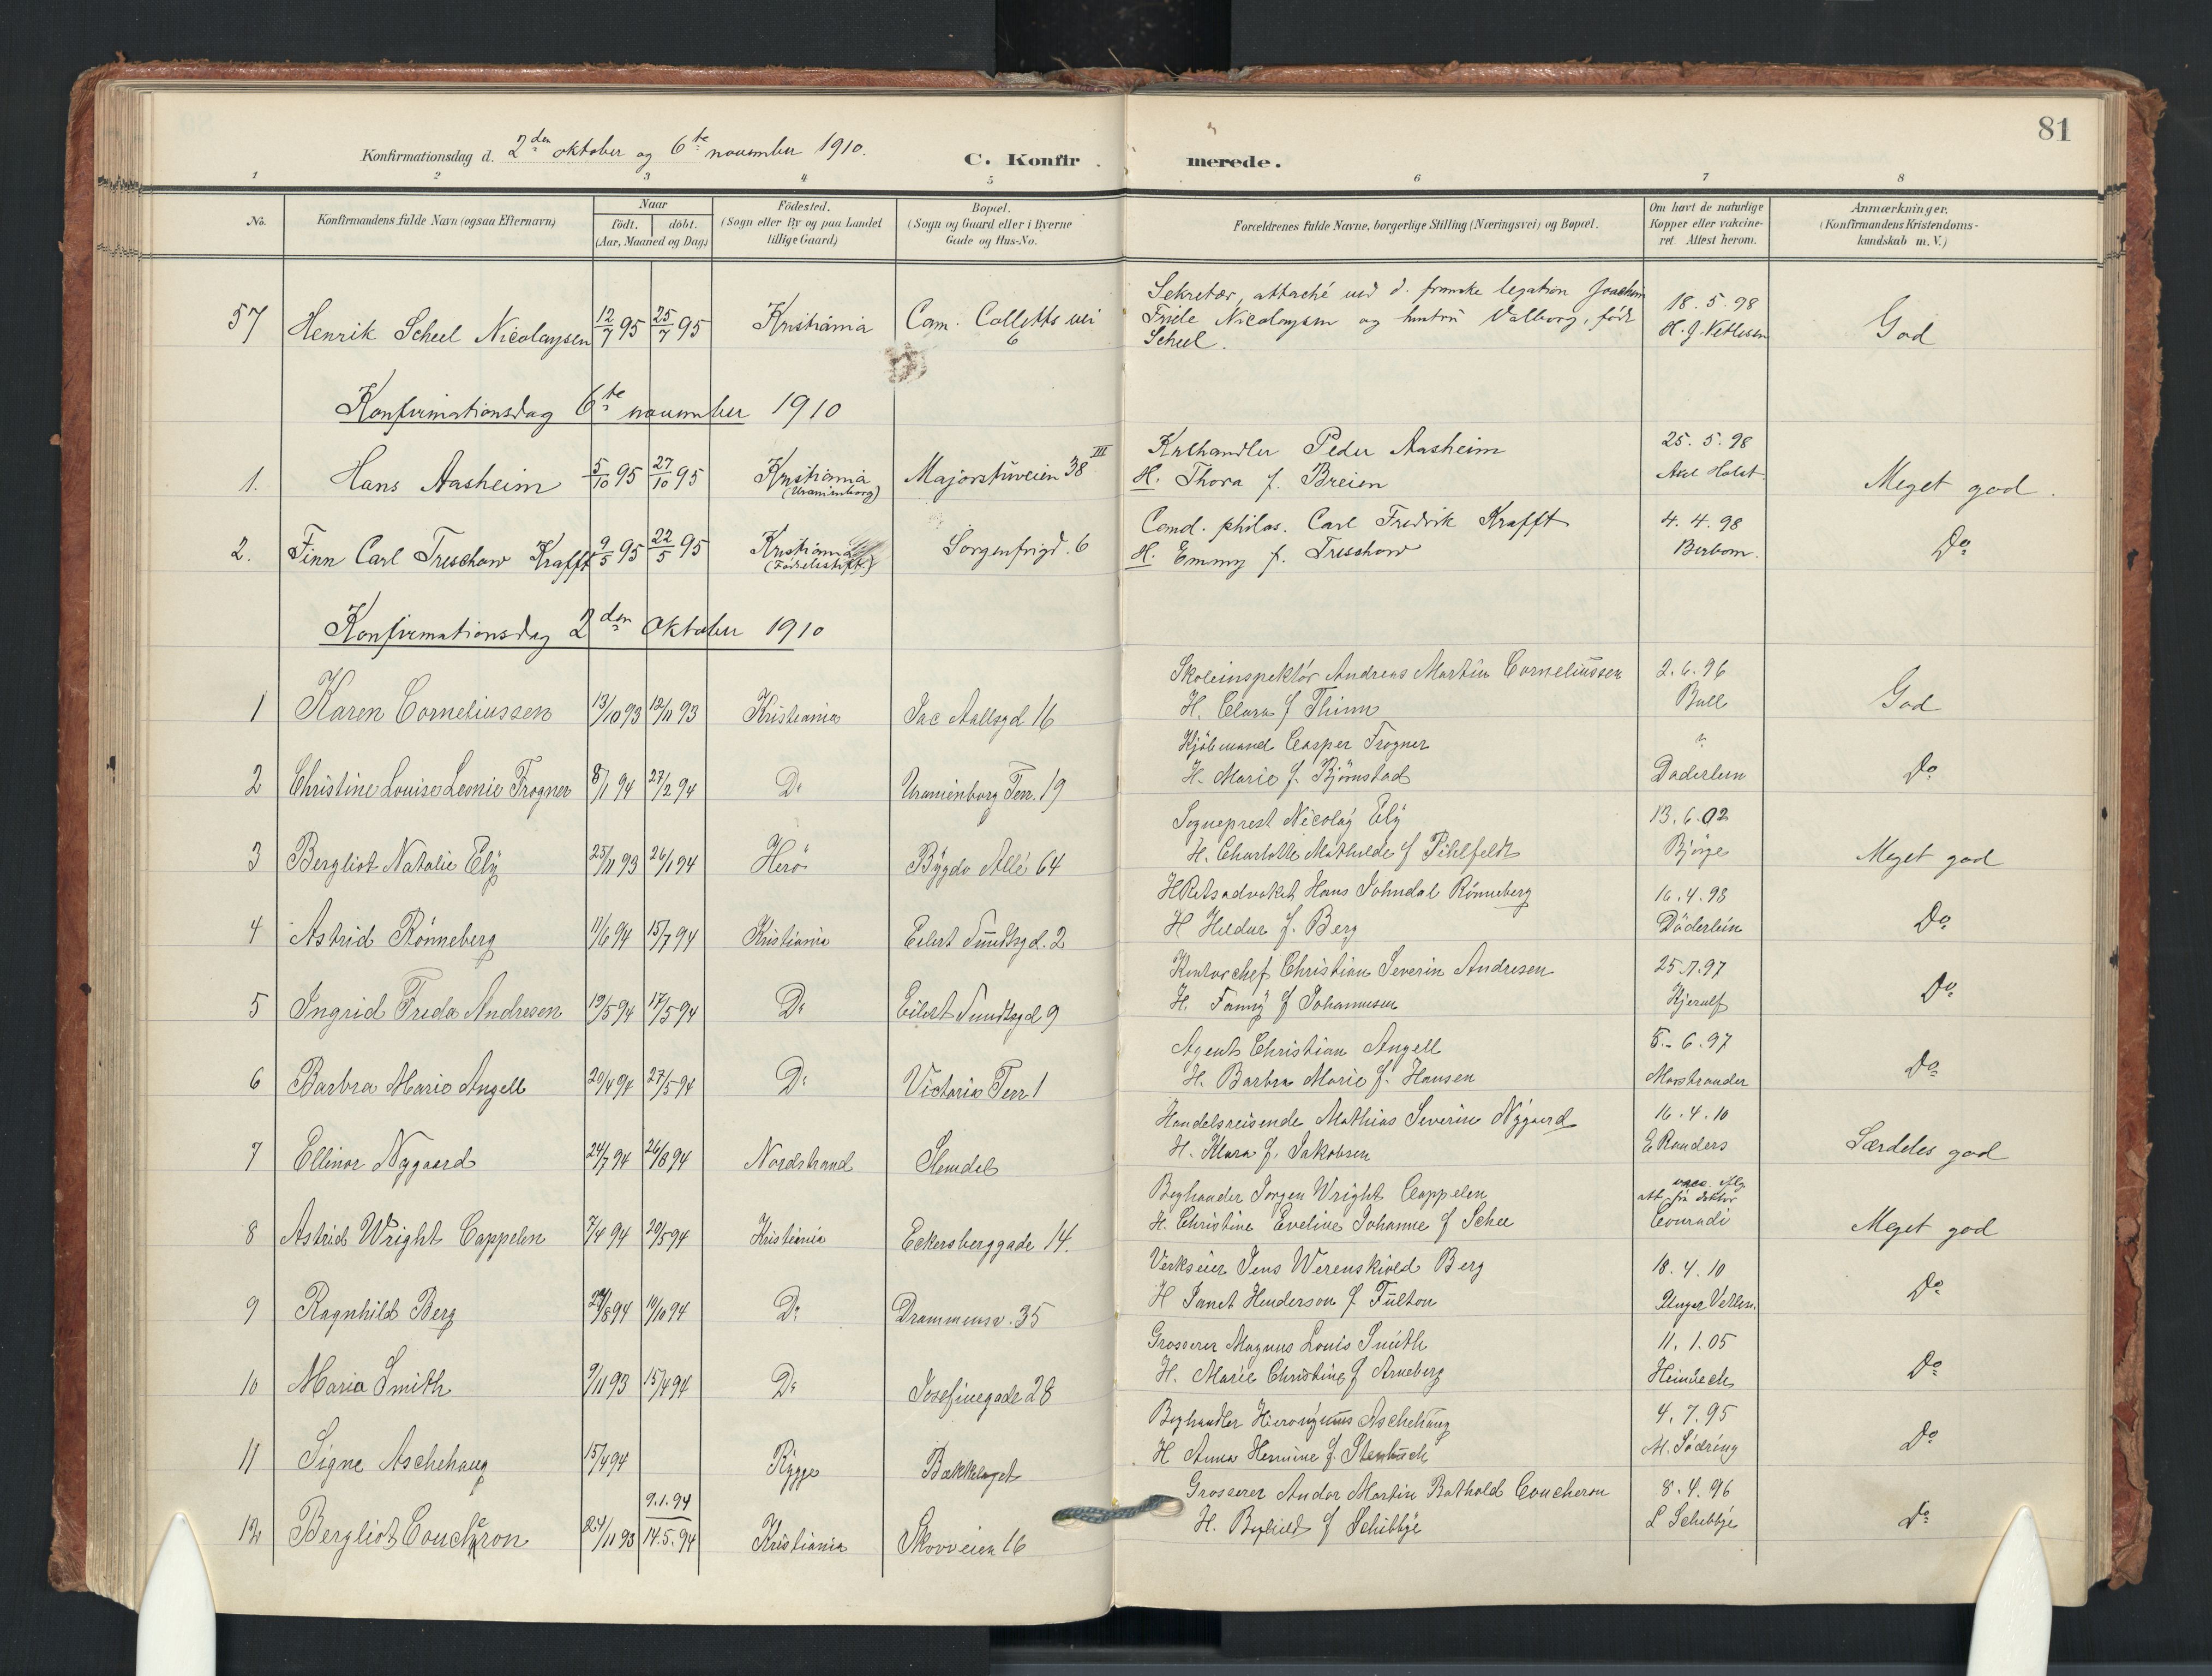 81
Konfirmationsdag d. 2den oktober og 6te november 1910. C. Konfir merede.
1 2 3 4 5 6 7 8
No. Konfirmandens fulde Navn (ogsaa Efternavn) Naar födt. döbt. (Aar, Maaned og Dag) Födested. (Sogn eller By og paa Landet tillige Gaard) Bopæl. (Sogn og Gaard eller i Byerne Gade og Hus-No. Forældrenes fulde Navne, borgerlige Stilling (Næringsvei) og Bopæl. Om havt de naturlige Kopper eller vaccineret. Attest herom. Anmærkninger. (Konfirmandens Kristendomskundskab m. V.)
57 Henrik Scheel Nicolaysen 12/7 95 25/7 95 Kristiania Cam. Colletts vei 6 Sekretær, attaché ved d. franske legation Joachim 18. 5. 98 God
Nicolaysen og hustru Valborg, födt H. J. Vetlesen
Scheel.
Konfirmationsdag 6te november 1910
1. Hans Aasheim 5/10 95 27/10 95 Kristiania (Uranienborg) Majorstuveien 38 III Kulhandler Peder Aasheim 25. 5. 98 Meget god.
H. Thora f. Breien Axel Holst
2. Finn Carl Treschow Krafft 9/5 95 22/5 95 Kristiania (Fødselsstift.) Sorgenfrigd. 6 Cand. philos. Carl Fredrik Krafft 4. 4. 98 Do
H. Emmy f. Treschow
Konfirmationsdag 2den Oktober 1910
1 Karen Corneliussen 13/10 93 12/11 93 Kristiania Jac Aallsgd 16 Skoleinspektör Andreas Martin Corneliussen 2. 6. 96 God
H. Clara f Thinn Bull
2 Christine Louise Leonie Frogner 8/1 94 27/2 94 Do Uranienborg Terr. 19 Kjöbmand Casper Frogner ? Do
H. Marie f. Björnstad Döderlein
3 Bergliot Natalie Ely 25/11 93 26/1 94 Herö Bygdö Allé 64 Sogneprest Nicolay Ely 13. 6. 02 Meget god
H. Charlotte Mathilde f Pihlfeldt Bjørge
4 Astrid Rönneberg 11/6 94 15/7 94 Kristiania Eilert Sundtsgd. 2 HRetsadvokat Hans Johndal Rönneberg 16. 4. 98 Do
H Heldur f. Berg Döderlein
5 Ingrid Freda Andresen 19/5 94 17/5 94 Do Eilert Sundtsgd 9 Kontorchef Christian Severin Andresen 25.7.97 Do
H. Fanny f Johannesen Kjerulf
6 Barbra Marie Angell 20/4 94 27/5 94 Do Victoria Terr 1 Agent Christian Angell 8. 6. 97 Do
H. Barbra Marie f. Hansen Marstrander
7 Ellinor Nygaard 24/7 94 26/8 94 Nordstrand Slemdal Handelsreisende Mathias Severin Nygaard 16. 4. 10 Særdeles god
H. Klara f. Jakobsen E Randers
8 Astrid Wright Cappelen 7/4 94 20/5 94 Kristiania Eckersberggade 14. Boghandler Jørgen Wright Cappelen att fra doktor Meget god
H. Christine Eveline Johanne f Schee Conradi
9 Ragnhild Berg 29/8 94 19/10 94 Do Drammensv. 35 Verkseier Jens Werenskiold Berg 18. 4. 10 Do
H Janet Henderson f Fulton Unger Vetlesn.
10 Maria Smith 9/11 93 15/4 94 Do Josefinegade 28 Grosserer Magnus Louis Smith 11. 1. 05 Do
H. Marie Christine f Arneberg
11 Signe Aschehoug 15/4 94 Rygge Bækkelaget Boghandler Hieronymus Aschehoug 4. 7. 95 Do
H Anna Hermine f. Stenbuch M. Södring
12 Bergliot Coucheron 24/11 93 9.1.94 14.5.94 Kristiania Skovveien 16 Grosserer Andor Martin Bathold Coucheron 8. 4. 96 Do
H. Boghild f Schibbye L Schibbye